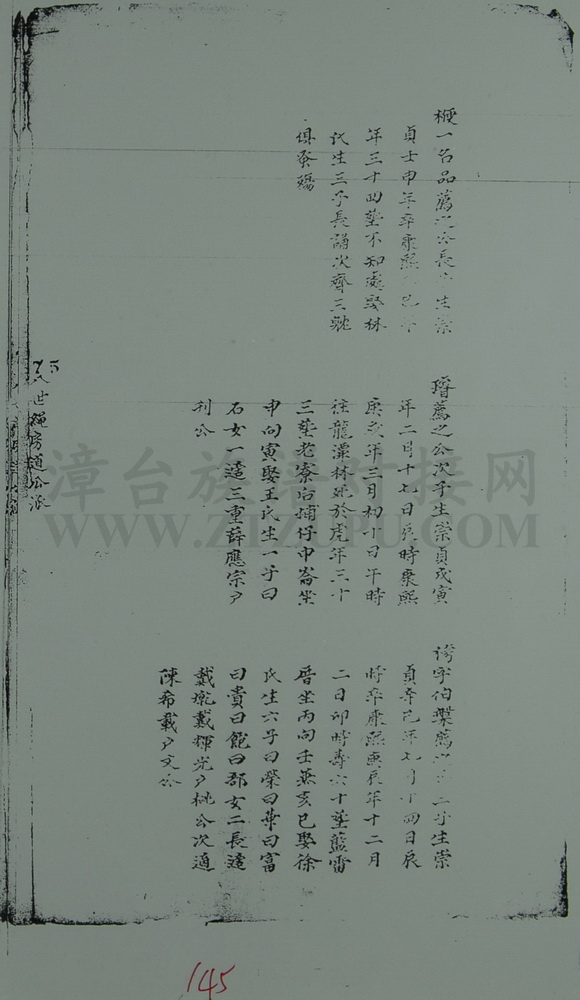 梗一名品薦之公長子生崇
貞壬申年卒康熙己年
年三十四塟不知處娶林
氏生三子長誦次齊三
俱蚤殤
瑃薦之公次子生崇貞戊寅
年二月十七日辰時康熙
庚戌年三月初十日午時
往龍潭林死於虎年三十
三塟老寮后埔仔中崙坐
申向寅娶王氏生一子曰
石女一適三重薛應宗戶
刊公
字伯璞薦之三子生崇
貞辛巳年七月十四日辰
時卒康熙庚辰年十二月
二日卯時壽六十塟藍雷
厝坐丙向壬兼亥巳娶徐
氏生六子曰榮曰華曰富
曰貴曰飽曰郡女二長適
戴戴輝光戶桃公次適
陳希載戶文公
世繩房道公派
漳台族譜对接网
WWW.ZTZUPU.COM
145